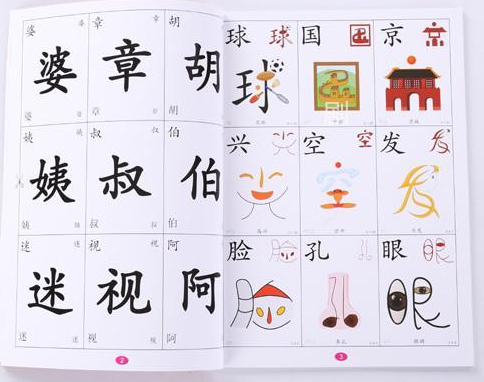 婆 章 胡
婆 章 胡
婆 章 胡
姨 叔 叔 伯
姨 叔 伯
姨 叔 叔 伯
迷 迷 视 视 阿
迷 视 阿
迷 迷 视 视 阿
2
球 球 国 国 京 京
球
兴 兴 空 空 发 发
空
脸 脸 孔 孔 眼 眼
脸 孔 眼
3